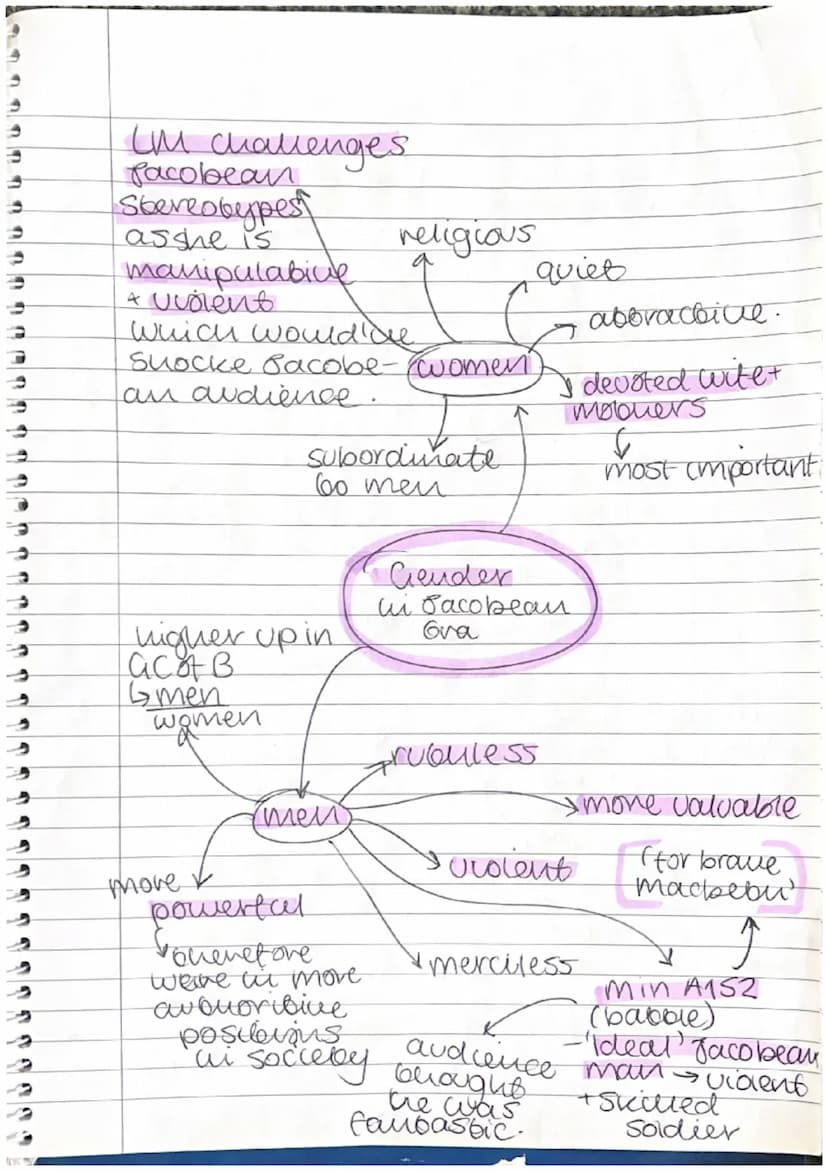 LM challenges
Jacobean
Stereotypes
as she is
manipulative
+ violent
which would've
shocke Jacobe-
an audience.
religious
quiet
attractive.
women
devoted wife +
mothers
most important
subordinate
to men
Gender
in Jacobean
Era
higher up in
GCofB
↳ men
women
men
ruthless
more valuable
violent
'for brave
Macbeth'
more
powerful
therefore
were in more
authoritive
positions
in society
merciless
M in A1S2
(battle)
- 'Ideal' Jacobean
man → violent
+ skilled
soldier
audience
thought
he was
fantastic.